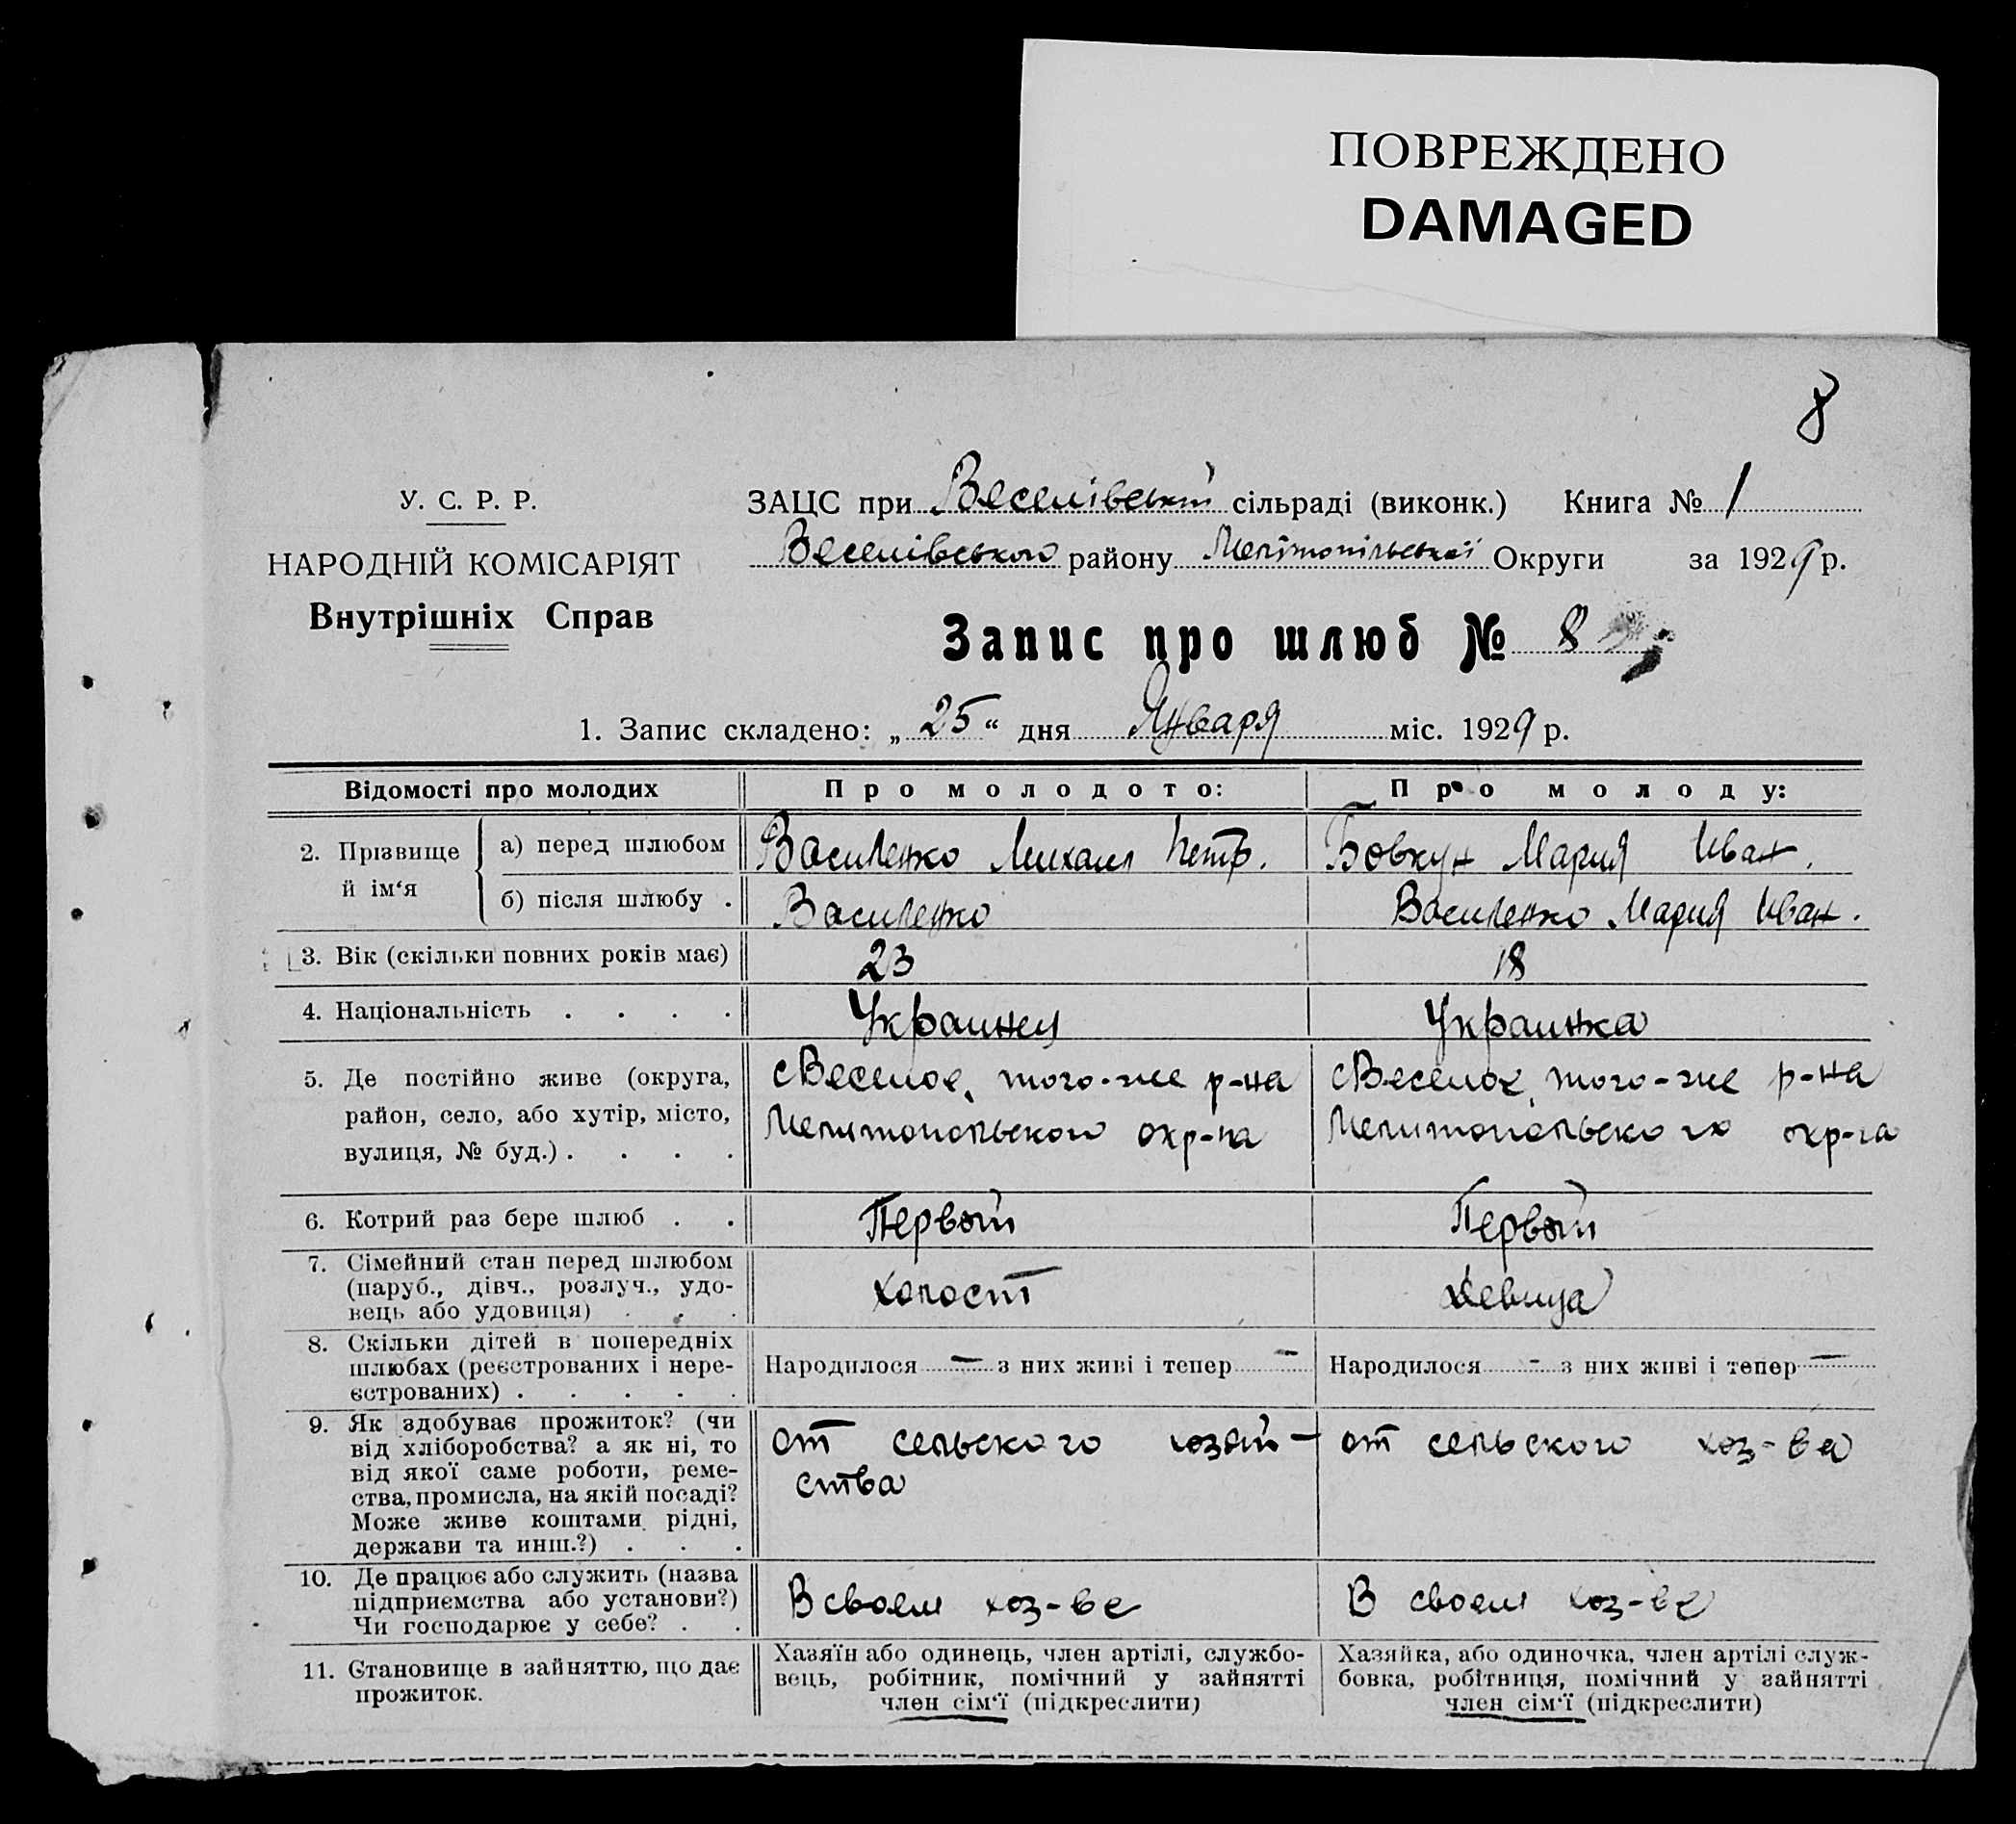 ПОВРЕЖДЕНО
DAMAGED
8
У. С. Р. Р.
НАРОДНІЙ КОМІСАРІЯТ
Внутрішніх Справ
ЗАЦС при Веселівській сільраді (виконк.) Книга № 1
Веселівського району Мелітопільської Округи за 1929 р.
Запис про шлюб № 8
1. Запис складено: „25“ дня Января міс. 1929 р.
Відомості про молодих
Про молодого:
Про молоду:
2. Прізвище й ім‘я
а) перед шлюбом
Василенко Михаил Петр.
Бовкун Мария Иван.
б) після шлюбу .
Василенко
Василенко Мария Иван.
3. Вік (скільки повних років має)
23
18
4. Національність . . . .
Украинец
Украинка
5. Де постійно живе (округа,
район, село, або хутір, місто,
вулиця, № буд.) . . . .
с Веселое, того-же р-на
Мелитопольского окр-га
с Веселое, того-же р-на
Мелитопольского окр-га
6. Котрий раз бере шлюб . .
Первый
Первый
7. Сімейний стан перед шлюбом
(паруб., дівч., розлуч., удо-
вець або удовиця) . . .
холост
девица
8. Скільки дітей в попередніх
шлюбах (реєстрованих і нере-
єстрованих) . . . . .
Народилося — з них живі і тепер —
Народилося - з них живі і тепер —
9. Як здобуває прожиток? (чи
від хліборобства? а як ні, то
від якої саме роботи, реме-
ства, промисла, на якій посаді?
Може живе коштами рідні,
держави та инш.?) . . .
от сельского хозяй-
ства
от сельского хоз-ва
10. Де працює або служить (назва
підприємства або установи?)
Чи господарює у себе? . .
В своем хоз-ве
В своем хоз-ве
11. Становище в зайняттю, що дає
прожиток.
Хазяїн або одинець, член артілі, службо-
вець, робітник, помічний у зайнятті
член сім‘ї (підкреслити)
Хазяйка, або одиночка, член артілі служ-
бовка, робітниця, помічний у зайнятті
член сім‘ї (підкреслити)